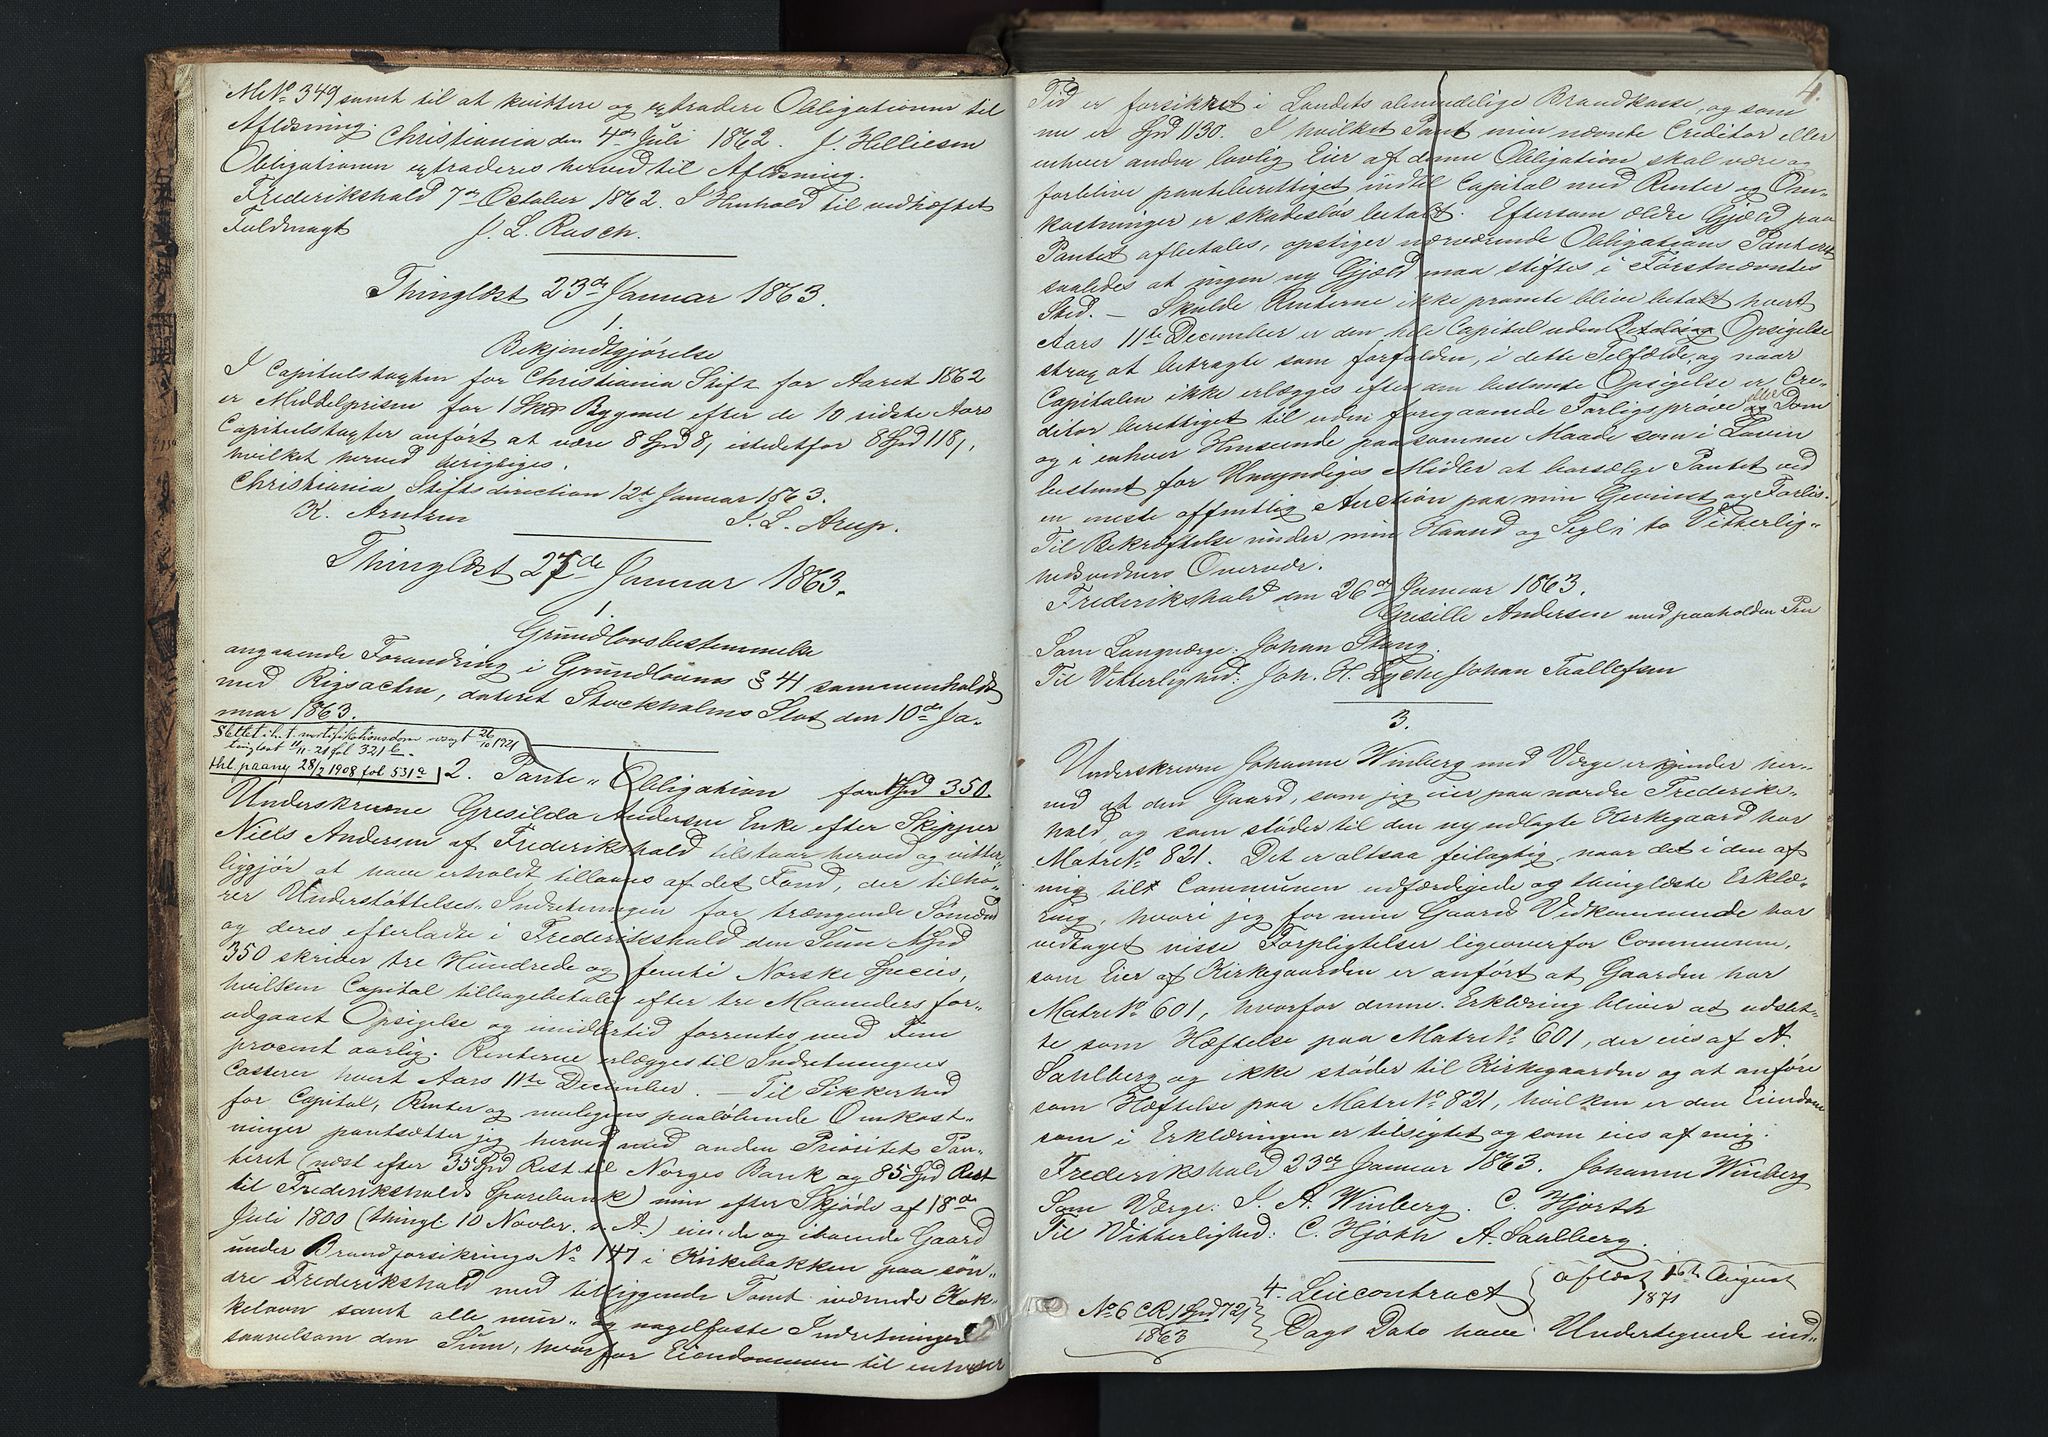 M.No 349 samt til at kvittere og extradere Obligationen til
Afløsning.
Christiania den 4de Juli 1862. J. Helliesen
Obligationen extraderes herved til Afløsning.
Frederikshald 7de October 1862. I Henhold til vedhæftet
Fuldmagt J. L. Rasch.
Thinglæst 23de Januar 1863.
1.
Bekjendtgjørelse
I Capitulstaxten for Christiania Stift for Aaret 1862
er Middelprisen for 1 Skp Bygmel efter de 10 sidste Aars
Capitulstaxter anført at være 8 Spd 8, istedetfor 8 Spd 118,
hvilket herved berigtiges.
Christiania Stiftsdirection 12te Januar 1863.
K. Arntzen J. L. Arup.
Thinglæst 27de Januar 1863.
1.
Grundlovsbestemmelse
angaaende Forandring i Grundlovens § 41 sammenholdt
med Rigsacten, dateret Stockholms Slot den 10de Ja-
nuar 1863.
Slettet i h. t. mortifikationsdom avsagt 26/10 1921
tinglæst 11/11-21 fol 321 b.
thl. paany 28/7 1908 fol 531a
2. Pante-Obligation for Spd 350
Underskrevne Gresilda Andersen Enke efter Skipper
Niels Andersen af Frederikshald tilstaar herved og vitter-
liggjør at have erholdt tillaans af det Fond, der tilhø-
rer Understøttelses-Indretningen for trængende Sømænd
og deres efterladte i Frederikshald den Sum Spd
350 skriver tre Hundrede og femti Norske Species,
hvilken Capital tilbagebetales efter tre Maaneders for-
udgaaet Opsigelse og imidlertid forrentes med Fem
procent aarlig. Renterne erlægges til Indretningens
Casserer hvert Aars 11te December. — Til Sikkerhed
for Capital, Renter og muligens paaløbende Omkost-
ninger pantsætter jeg herved med anden Prioritet Pan-
teret (næst efter 35 Spd Rest til Norges Bank og 85 Spd Rest
til Frederikshalds Sparebank) min efter Skjøde af 18de
Juli 1800 (thingl 10 Novbr. s. A.) eiende og iboende Gaard
under Brandforsikrings No 147 i Kirkebakken paa søn-
dre Frederikshald med tilliggende Tomt iværende Kak-
kelovn samt alle mur- og nagelfaste Indretninger
saavelsom den Sum, hvorfor Eiendommen til enhver
4.
Tid er forsikret i Landets almindelige Brandkasse, og som
nu er Spd 1130. I hvilket Pant min nævnte Creditor eller
enhver anden lovlig Eier af denne Obligation skal være og
forblive panteberettiget indtil Capital med Renter og Om-
kostninger er skadesløs betalt. Eftersom ældre Gjæld paa
Pantet afbetales, opstiger nærværende Obligations Panteret
saaledes at ingen ny Gjæld maa stiftes i Førstnævntes
Sted. — Skulde Renterne ikke promte blive betalt hvert
Aars 11te December er den hele Capital uden Betaling Opsigelse
strax at betragte som forfalden, i dette Tilfælde, og naar
Capitalen ikke erlægges efter den bestemte Opsigelse er Cre-
ditor berettiget til uden foregaaende Forligsprøve eller Dom
og i enhver Henseende paa samme Maade som i Loven
bestemt for Umyndiges Midler at bortsælge Pantet ved
en meste offentlig Auction paa min Gevinst og Forlis.
Til Bekræftelse under min Haand og Segl i to Vitterlig-
hedsvidners Overvær.
Frederikshald den 26de Januar 1863.
Gresille Andersen med paaholden Pen
Som Laugværge: Johan Stang.
Til Vitterlighed: Joh. H. Lyche Johan Taallefsen
3.
Underskrevne Johanne Winberg med Værge erkjender her-
ved at den Gaard, som jeg eier paa nordre Frederiks-
hald, og som støder til den ny udlagte Kirkegaard har
Matr No 821. Det er altsaa feilagtig, naar det i den af
mig til Communen udfærdigede og thinglæste Erklæ-
ring, hvori jeg for min Gaards Vedkommende har
vedtaget visse Forpligtelser ligeoverfor Communen,
som Eier af Kirkegaarden er anført at Gaarden har
Matr No 601, hvorfor denne Erklæring bliver at udslet-
te som Hæftelse paa Matr No 601, der eies af A.
Sahlberg og ikke støder til Kirkegaarden og at anføre
som Hæftelse paa Matr No 821, hvilken er den Eiendom
som i Erklæringen er tilsigtet og som eies af mig.
Frederikshald 23de Januar 1863. Johanne Winberg
Som Værge: J. A. Winberg. C. Hjorth
Til Vitterlighed: C. Hjorth A. Sahlberg.
4. Leiecontract aflæst 16de August
1871
No 6 CR 1 Spd 72/
1863
Dags Dato have Undertegnede ind-